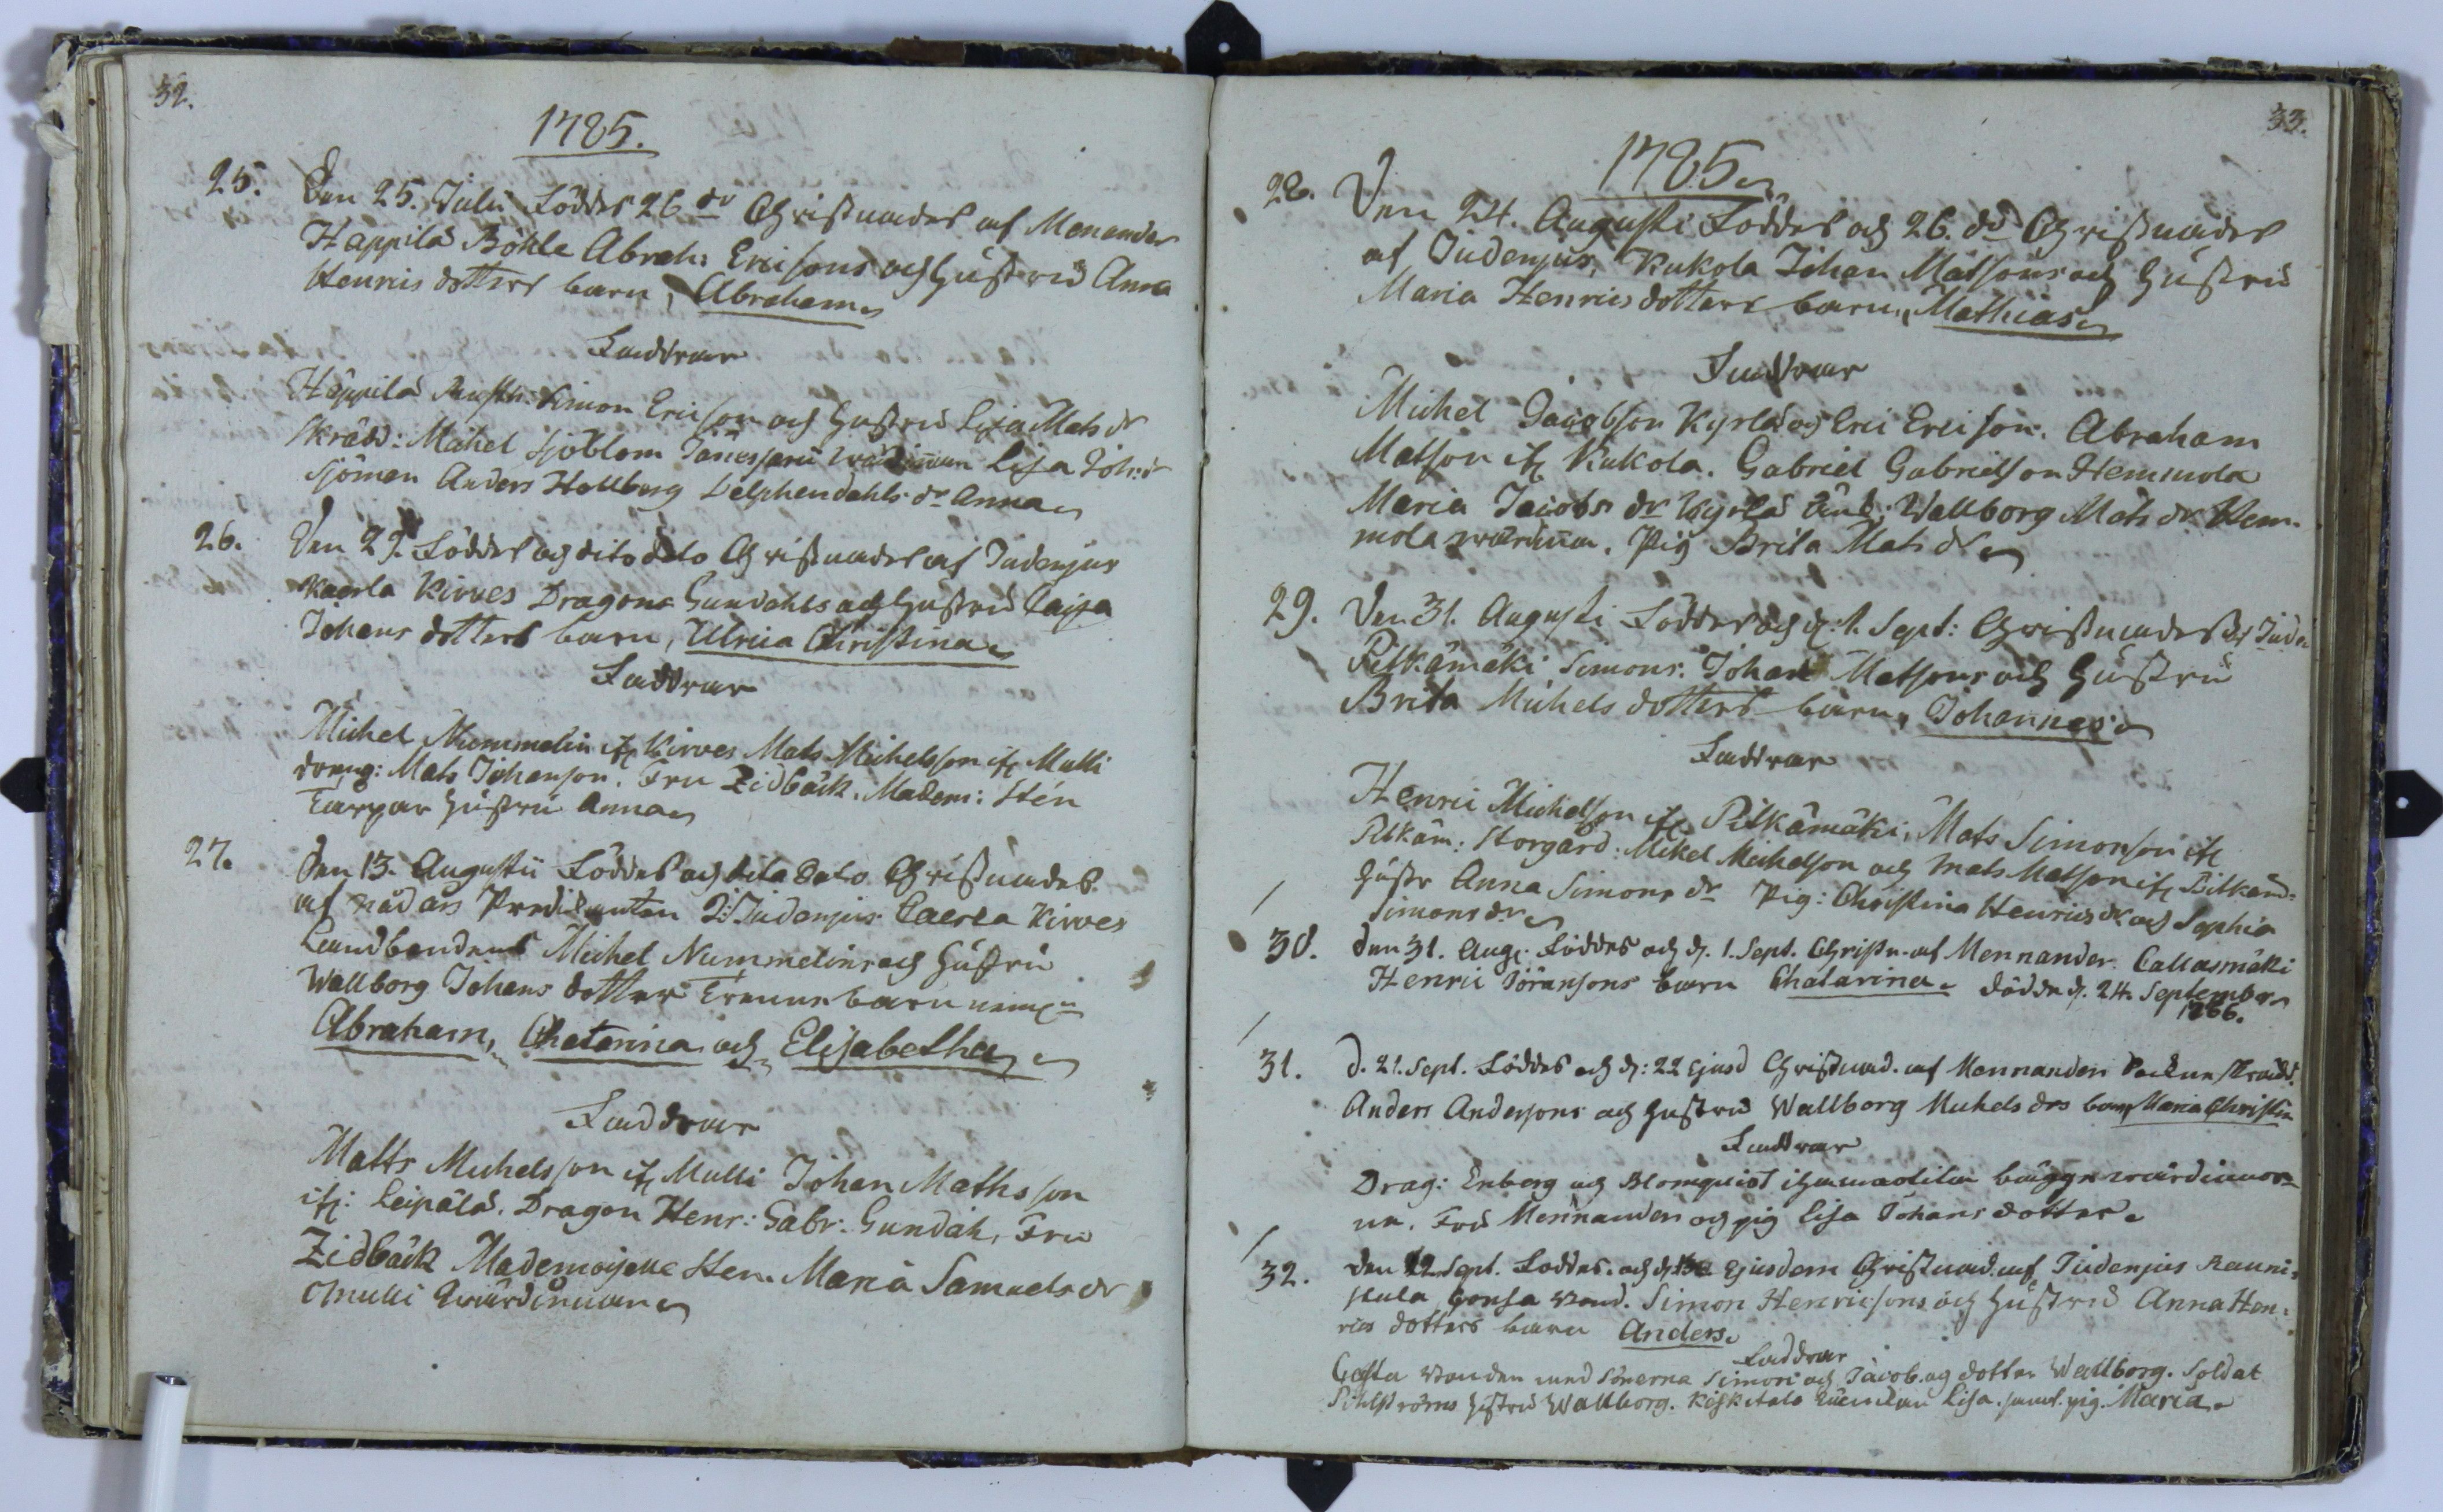 32.
1785.
25. Den 25. Julii Föddes 26 do Christnades af Menander
Häppilä Böhle Abrah: Ericsons och Hustru Anna
Henrics dotters barn, Abraham
Faddrar
Häppilä Rusth: Simon Ericson och Hustru Lisa Mats dr
Skrädd: Michel Sjöblom Lisa Joh: dr
Sjöman Anders Hollberg dr Anna
26. Den 29. Föddes och dito dato Christnades af Judenjus
Kaerla Kirves Dragone Gundahls och Hustru Caisa
Johans dotters barn, Ulrica Christina
Faddrar
Michel Nummelin ifr Kirves Mats Michelsson ifr Mulli
dreng: Mats Johanson. Fru Zidbäck. Madem: Stén
Hustru Anna
27. Den 13. Augustii Föddes och dito dato Christnades
af nådårs Predikanten D: Judenjus Caerla Kirves
Landbondens Michel Nummelins och Hustru
Wallborg Johans dotter Trenne barn neml:
Abraham, Chatarina och Elisabetha
Faddrar
Matts Michelsson ifr Mulli Johan Mathsson
ifr: Leipälä. Dragon Henr: Gabr: Gundah, Fru
Zidbäck Mademoiselle Sten. Maria Samuels dr
Mulli wärdinnan
33.
1785
28. Den 24. Augusti Föddes och 26. do Christnades
af Judenjus, Kukola Johan Matsons och Hustru
Maria Henrics dotters barn, Mathias
Faddrar
Michel Jacobson Kyrlä och Eric Ericson. Abraham
Matson ifr Kukola. Gabriel Gabrielson Hemmola
Maria Jacobs dr Kyrlä Wallborg Mats dr Hem-
mola wärdinna. Pig Brita Mats dr
29. Den 31. Augusti Föddes och d: 1. Sept: Christnades af Jude
Pitkämäki Simons. Johan Matsons och Hustru
Brita Michels dotters barn, Johannes
Faddrar
Henric Michelson ifr Pitkämäki, Mats Simonson ifr
Pitkäm: Storgård: Mikel Michelson och Mats Matson ifr Pitkäm:
Hustr Anna Simons dr Pig: Christina Henrics dr och Sophia
Simons dr
30. Den 31. Aug: Föddes och d. 1. Sept. Christn. af Mennander. Callasmäki
Henric Jöransons barn Chatarina. dödde d. 24. September
1866.
31. D. 21. Sept. Föddes och d: 22 Ejusd Christnad. af Mennander Skrädd.
Anders Andersons och Hustru Wallborg Michels drs barn Maria Christin
Faddrar
Drag: Enberg och Blomquist bägge wärdinnor-
ne. Fru Mennander och pig Lisa Johans dotter.
32. Den 12 Sept. Föddes. och d. Ejusdem Christnad. af Judenjus Rauni-
kula bond. Simon Henricsons och Hustru Anna Hen-
rics dotters barn Anders.
Faddrar
bonden med Sönerna Simon och Jacob. och dotter Wallborg. Soldat
Hustru Wallborg. Lisa. samt. pig. Maria.